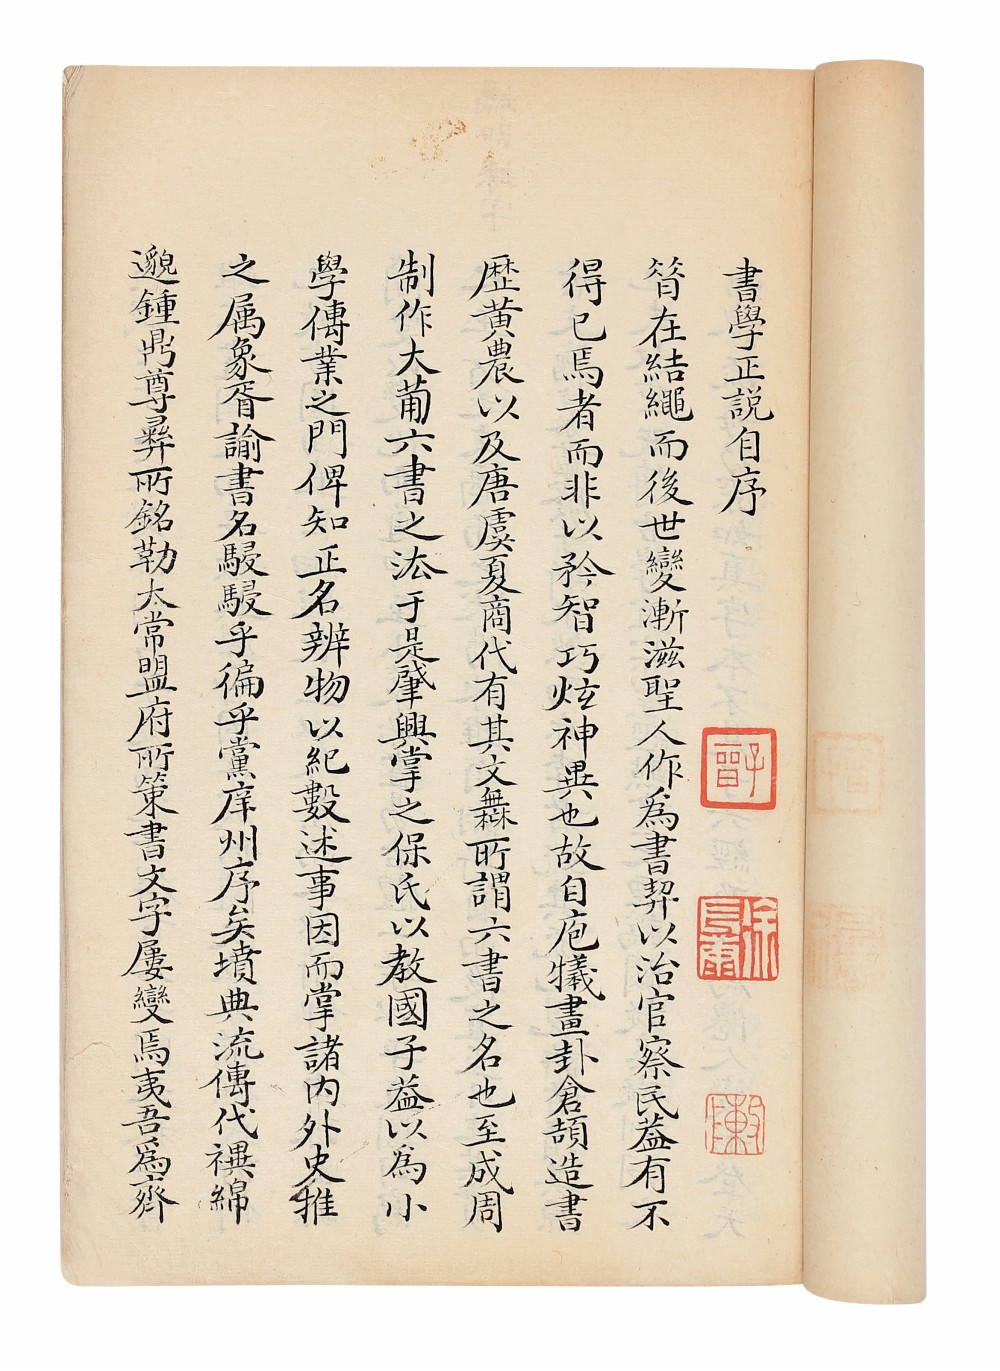 書學正説自序
㫺在結繩而後世變漸滋聖人作爲書契以治官察民葢有不
得已焉者而非以矜智巧炫神異也故自庖犧畫卦倉頡造書
歷黄農以及唐虞夏商代有其文無所謂六書之名也至成周
制作大葡六書之法于是肈興掌之保氏以教國子葢以爲小
學傳業之門俾知正名辨物以紀數述事因而掌諸内外史推
之属象胥諭書名駸駸乎徧乎黨庠州序矣墳典流傳代禩綿
邈鍾鼎尊彛所銘勒太常盟府所策書文字屢變焉夷吾爲齊
子晉